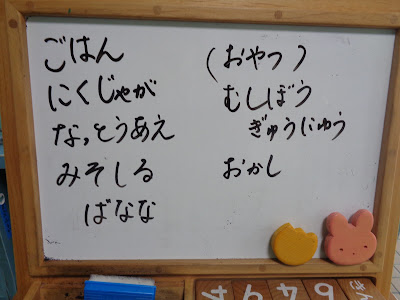 ごはん
にくじゃが
なっとうあえ
みそしる
ばなな
(おやつ)
むしぼう
ぎゅうにゅう
おかし